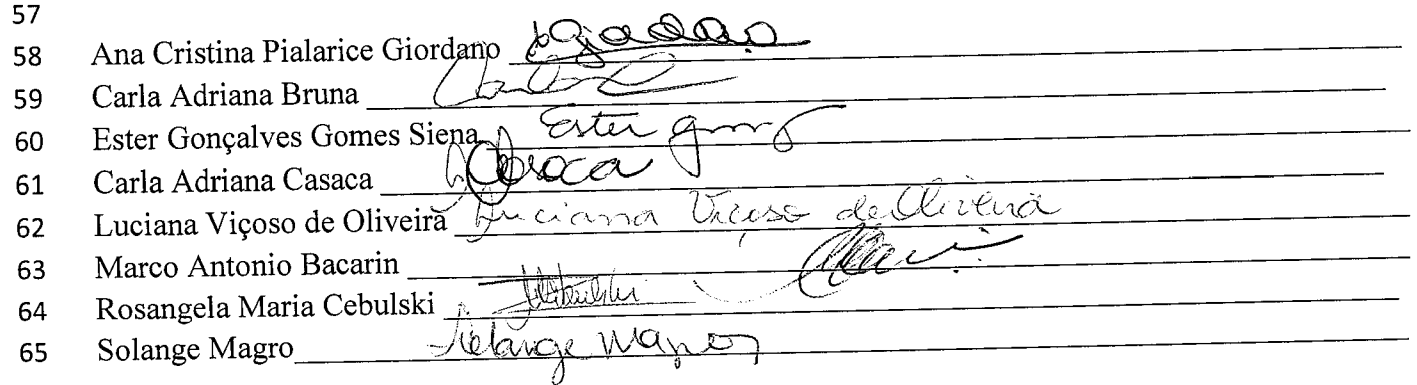 57
58 Ana Cristina Pialarice Giordano
59 Carla Adriana Bruna
60 Ester Gonçalves Gomes Siena Ester
61 Carla Adriana Casaca
62 Luciana Viçoso de Oliveira Luciana Viçoso de Oliveira
63 Marco Antonio Bacarin
64 Rosangela Maria Cebulski
65 Solange Magro Solange Magro